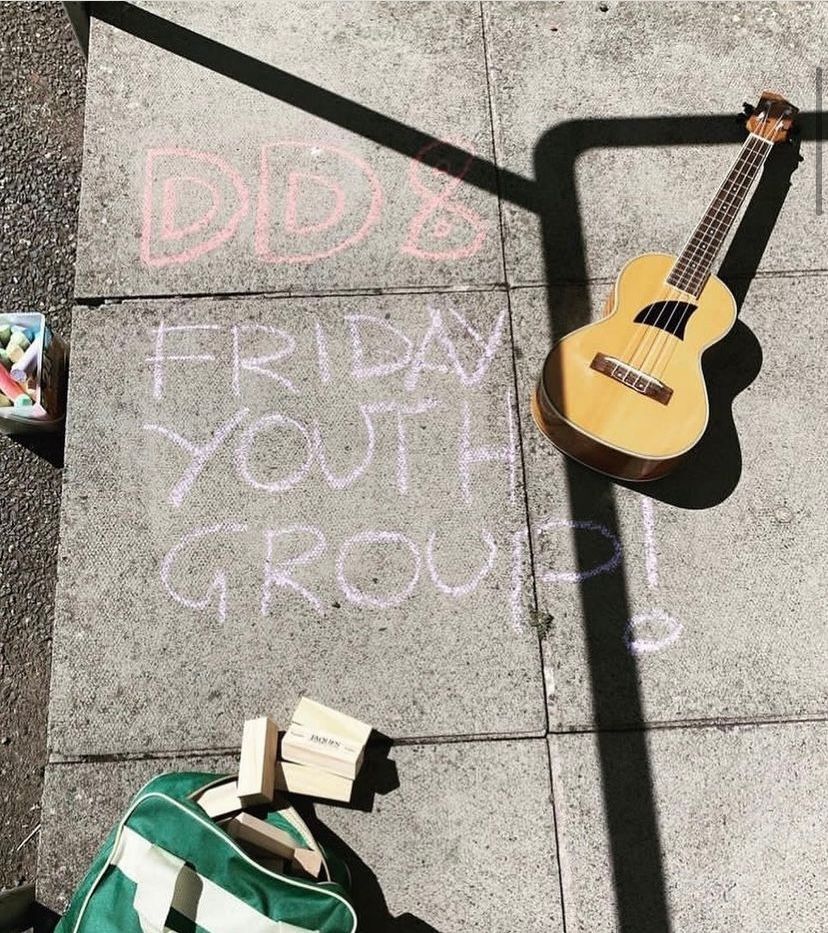 DD8
FRIDAY
YOUTH
GROUP!
JAQUES